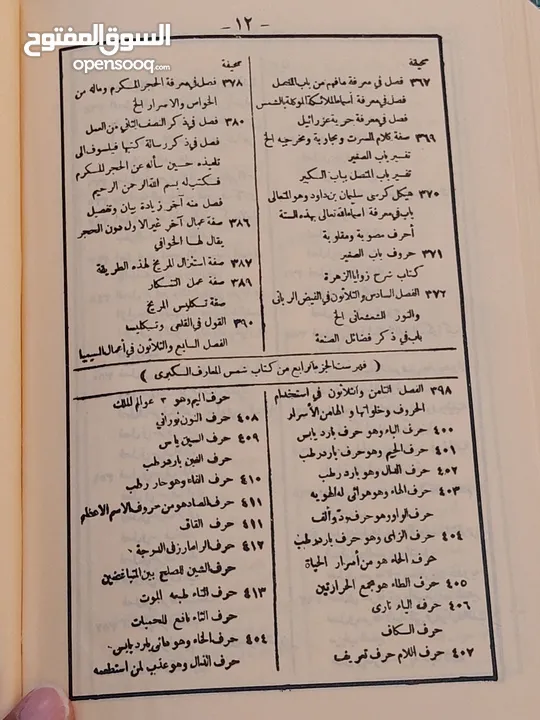 السوق المفتوح
opensooq.com
- ١٢ -
صحيفة
٣٦٧ فصل في معرفة مافهم من باب المتصل
فصل في معرفة أسماء الملائكة الموكلة بالشمس
فصل في معرفة حربة عزرائيل
٣٦٩ صفة كلام السرت ومجاوبة ومخرجيه الخ
تفسير باب الصغير
تفسير باب المتصل بباب الكبير
٣٧٠ هيكل كرسى سليمان بن داود وهو المتعالى
باب في معرفة اسماء الله تعالى بهذه الستة
أحرف مصوبة ومقلوبة
٣٧١ حروف باب الصغير
كتاب شرح زوايا الزهرة
٣٧٢ الفصل السادس والثلاثون في الفيض الربانى
والنور الشعشعانى الخ
باب في ذكر فضائل الصنعة
صحيفة
٣٧٨ فصل في معرفة الحجر المكرم وماله من
الخواص والاسرار الخ
٣٨٠ فصل في ذكر النصف الثاني من العمل
فصل في ذكر رسالة كتبها فيلسوف الى
تلميذه حسين سأله عن الحجر المكرم
فكتب له بسم الله الرحمن الرحيم
فصل منه آخر زيادة بيان وتفصيل
٣٨٦ صفة عمال آخر غير الاول دون الحجر
يقال لها الخوافي
٣٨٧ صفة استنزال المريخ لهذه الطريقة
٣٨٩ صفة عمل التنكار
صفة تكليس المريخ
٣٩٠ القول في القلعى وتكليسه
الفصل السابع والثلاثون في أعمال السيميا
( فهرست الجزء الرابع من كتاب شمس المعارف الكبرى )
٣٩٨ الفصل الثامن والثلاثون في استخدام
الحروف وخلواتها و الهامن الأسرار
٤٠٠ حرف الباء وهو حرف بارد يابس
٤٠١ حرف الجيم وهو حرف بارد رطب
٤٠٢ حرف الدال وهو بارد رطب
٤٠٣ حرف الهاء وهو هوائى له الهويه
حرف الواو وهو حرف ود وألف
٤٠٤ حرف الزاى وهو حرف بارد رطب
حرف الحاء هو من أسرار الحياة
٤٠٥ حرف الطاء هو مجمع الحرارتين
٤٠٦ حرف الياء نارى
حرف الكاف
٤٠٧ حرف اللام حرف تعريف
حرف الميم وهو ٢ عوالم الملك
٤٠٨ حرف النون نورانى
٤٠٩ حرف السين يابس
حرف العين بارد رطب
٤١٠ حرف الفاء وهو حار رطب
٤١١ حرف الصاد هو من حروف الاسم الاعظم
٤١١ حرف القاف
٤١٢ حرف الراء بارز في الدرجة
حرف الشين للصلح بين المتباغضين
٤١٣ حرف التاء طبعه الموت
حرف الثاء نافع للحميات
٤٥٤ حرف الخاء وهو مائى بارد يابس
حرف الذال وهو عذب لمن استطعمه